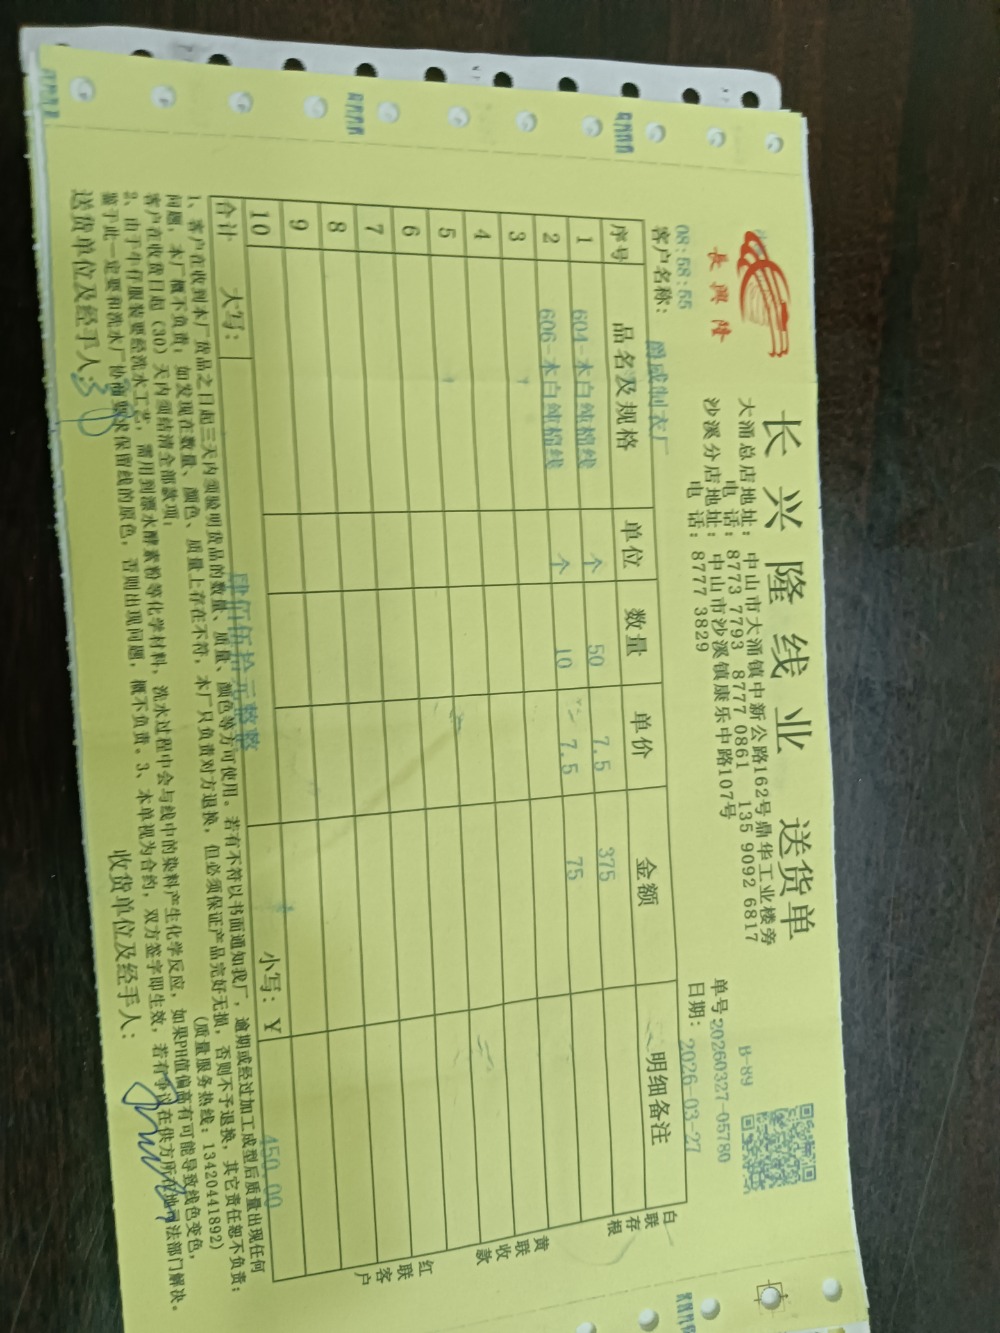 長興隆
长兴隆线业 送货单
大涌总店地址：中山市大涌镇中新公路162号鼎华工业楼旁
电 话：8773 7793 8777 0861 135 9092 6817
沙溪分店地址：中山市沙溪镇康乐中路107号
电 话：8777 3829
B-89
单号：20260327-05780
日期：2026-03-27
08:58:55
客户名称：爵威制衣厂
序号 品名及规格 单位 数量 单价 金额 明细备注
1 604-本白纯棉线 个 50 7.5 375
2 606-本白纯棉线 个 10 7.5 75
3
4
5
6
7
8
9
10
合计 大写：肆佰伍拾元整整 小写：Y 450.00
1、客户在收到本厂货品之日起三天内须验明货品的数量、质量、颜色等方可使用。若有不符以书面通知我厂，逾期或经过加工成型后质量出现任何
问题，本厂概不负责；如发现在数量、颜色、质量上存在不符，本厂只负责对方退换，但必须保证产品完好无损，否则不予退换，其它责任恕不负责；
客户在收货日起（30）天内须结清全部款项；（质量服务热线：13420441892）
2、由于牛仔服装要经洗水工艺，需用到漂水酵素粉等化学材料，洗水过程中会与线中的染料产生化学反应，如果PH值偏高有可能导致线色变色，
鉴于此一定要和洗水厂协商要求保留线的原色，否则出现问题，概不负责。3、本单视为合约，双方签字即生效，若有争议在供方所在地司法部门解决。
送货单位及经手人：
收货单位及经手人：
白联存根
黄联收款
红联客户